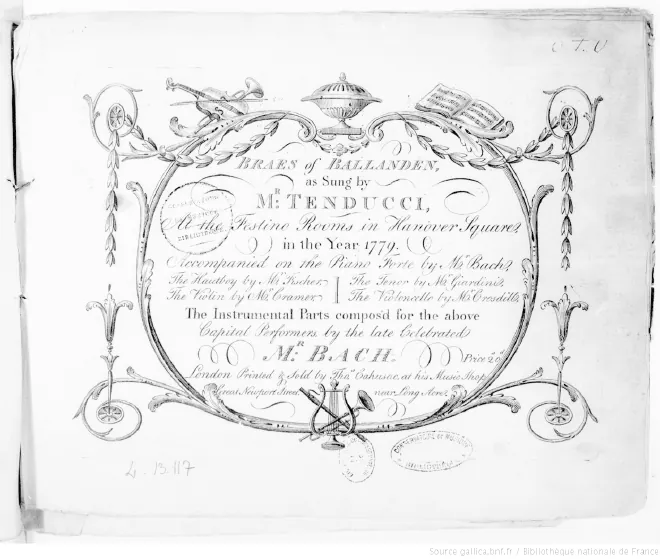 U.T.U
BRAES of BALLANDEN,
as Sung by
Mr. TENDUCCI,
At the Festino Rooms in Hanover Square,
in the Year 1779.
Accompanied on the Piano Forte by Mr. Bach,
The Hautboy by Mr. Fischer, The Tenor by Mr. Giardini,
The Violin by Mr. Cramer, The Violoncello by Mr. Crosdill,
The Instrumental Parts compos'd for the above
Capital Performers by the late Celebrated
Mr. BACH.
Price 2s
London Printed & Sold by Thos. Cahusac, at his Music Shop
Great Newport Street, near Long Acre.
CONSERVATOIRE DE MUSIQUE
BIBLIOTHÈQUE
L. 13.117
Source gallica.bnf.fr / Bibliothèque nationale de France